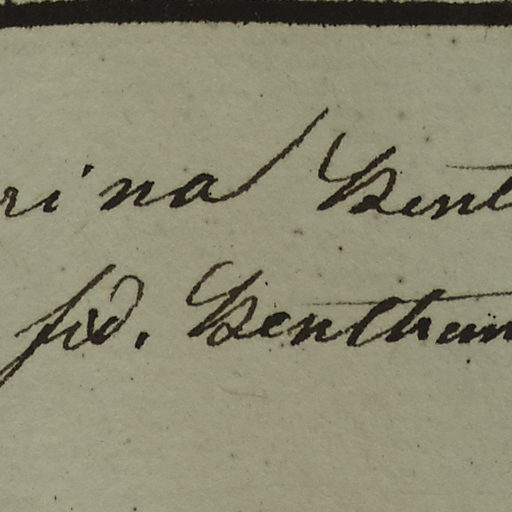 rina Benth
fid. Bentham